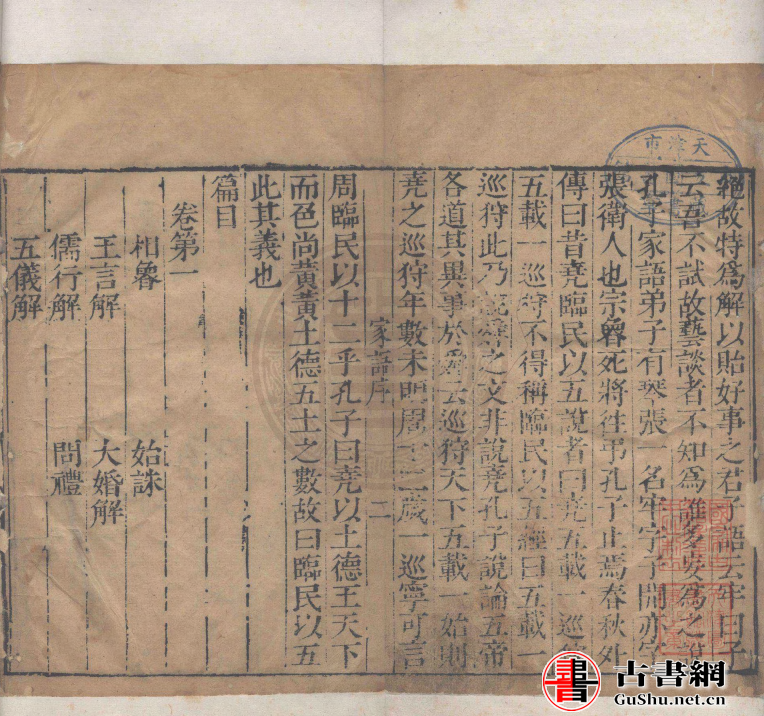 絕故特爲解以貽好事之君子語云牢曰子
云吾不試故藝談者不知爲誰多妄爲之說
孔子家語弟子有琴張一名牢字子開亦字
張衛人也宗魯死將往弔孔子止焉春秋外
傳曰昔堯臨民以五說者曰堯五載一巡
五載一巡狩不得稱臨民以五經曰五載一
巡狩此乃說舜之文非說堯孔子說論五帝
各道其異事於舜云巡狩天下五載一始則
堯之巡狩年數未明周十二歲一巡寧可言
家語序 二
周臨民以十二乎孔子曰堯以土德王天下
而色尚黃黃土德五土之數故曰臨民以五
此其義也
篇目
卷第一
相魯 始誅
王言解 大婚解
儒行解 問禮
五儀解
天津市
古書網
GuShu.net.cn